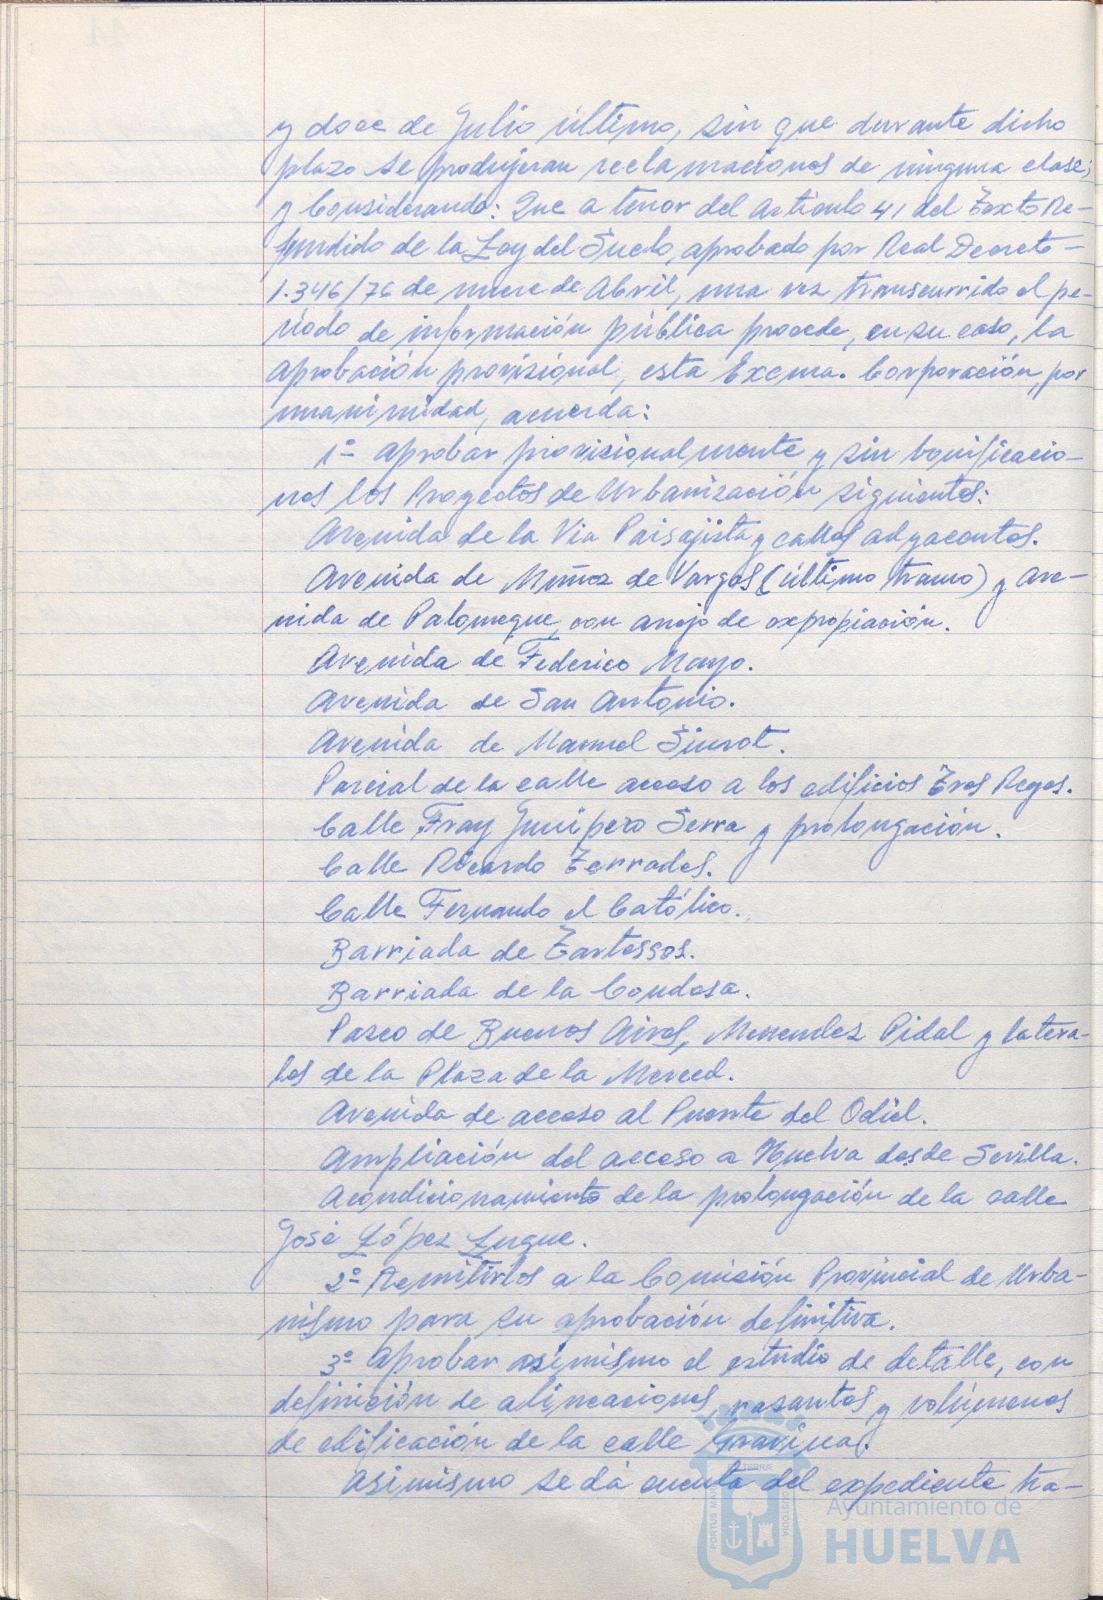 y doce de Julio último, sin que durante dicho
plazo se produjeran reclamaciones de ninguna clase;
y Considerando: Que a tenor del artículo 41 del Texto Re-
fundido de la Ley del Suelo, aprobado por Real Decreto
1.346/76 de nueve de Abril, una vez transcurrido el pe-
riodo de información pública procede, en su caso, la
aprobación provisional, esta Excma. Corporación, por
unanimidad, acuerda:
1º Aprobar provisionalmente y sin bonificacio-
nes los Proyectos de Urbanización siguientes:
Avenida de la Vía Paisajista y calles adyacentes.
Avenida de Muñoz de Vargas (último tramo) y ave-
nida de Palomeque, con anejo de expropiación.
Avenida de Federico Mayo.
Avenida de San Antonio.
Avenida de Manuel Siurot.
Parcial de la calle acceso a los edificios Tres Reyes.
Calle Fray Junípero Serra y prolongación.
Calle Ricardo Terrades.
Calle Fernando el Católico.
Barriada de Tartessos.
Barriada de la Condesa.
Paseo de Buenos Aires, Menendez Pidal y latera-
les de la Plaza de la Merced.
Avenida de acceso al Puente del Odiel.
Ampliación del acceso a Huelva desde Sevilla.
Acondicionamiento de la prolongación de la calle
José López Luque.
2º Remitirlos a la Comisión Provincial de Urba-
nismo para su aprobación definitiva.
3º Aprobar asimismo el estudio de detalle, con
definición de alineaciones, rasantes y volúmenes
de edificación de la calle Gravina.
Asimismo se dá cuenta del expediente tra-
Ayuntamiento de
HUELVA